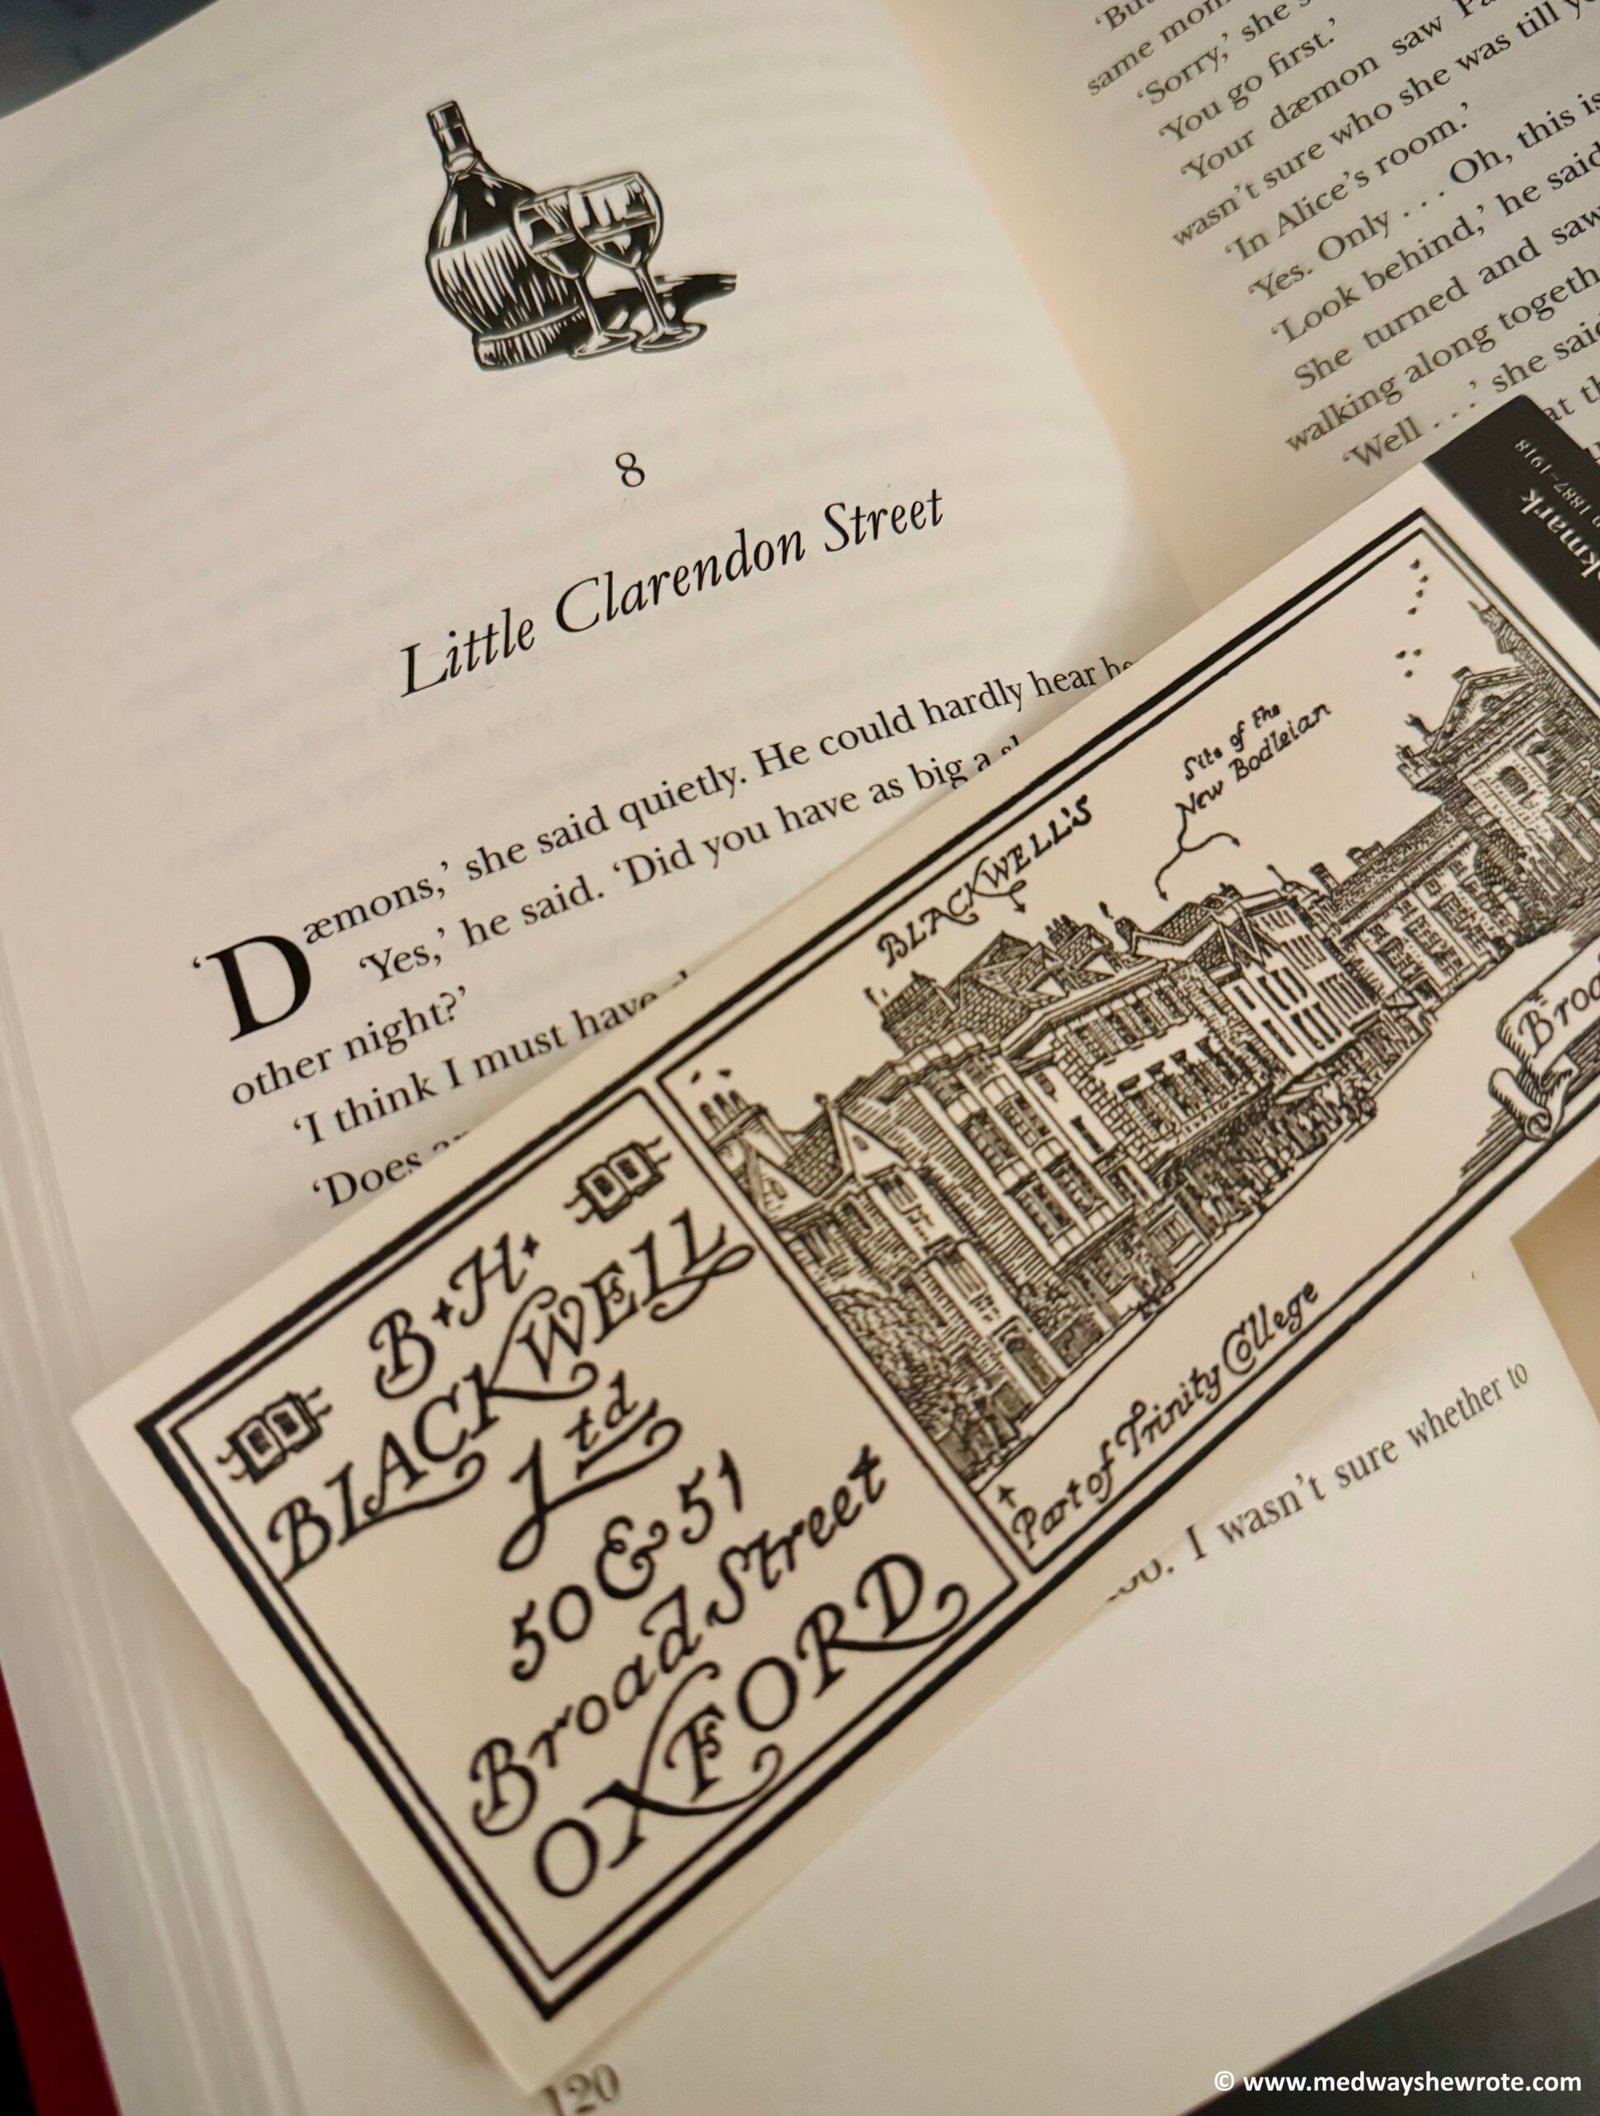 8
Little Clarendon Street
‘Dæmons,’ she said quietly. He could hardly hear
‘Yes,’ he said. ‘Did you have as big a
other night?’
‘I think I must have
‘Does
I wasn’t sure whether to
120
same
‘Sorry,’ she
‘You go first.’
‘Your dæmon saw
wasn’t sure who she was till
‘In Alice’s room.’
‘Yes. Only . . . Oh, this is
‘Look behind,’ he said
She turned and saw
walking along
‘Well . . .’ she said
1887–1918
B·H·
BLACKWELL
Ltd
50 & 51
Broad Street
OXFORD
BLACKWELL'S
Site of the
New Bodleian
Part of Trinity College
© www.medwayshewrote.com